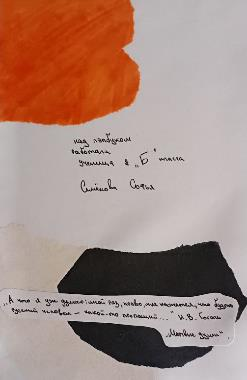 над лэпбуком
работала
ученица 8 „Б" класса
Семёнова Софья
„А что я уж думал: иной раз, право, мне кажется, что будто
русский человек – какой-то пропащий..." Н.В. Гоголь
„Мёртвые души".